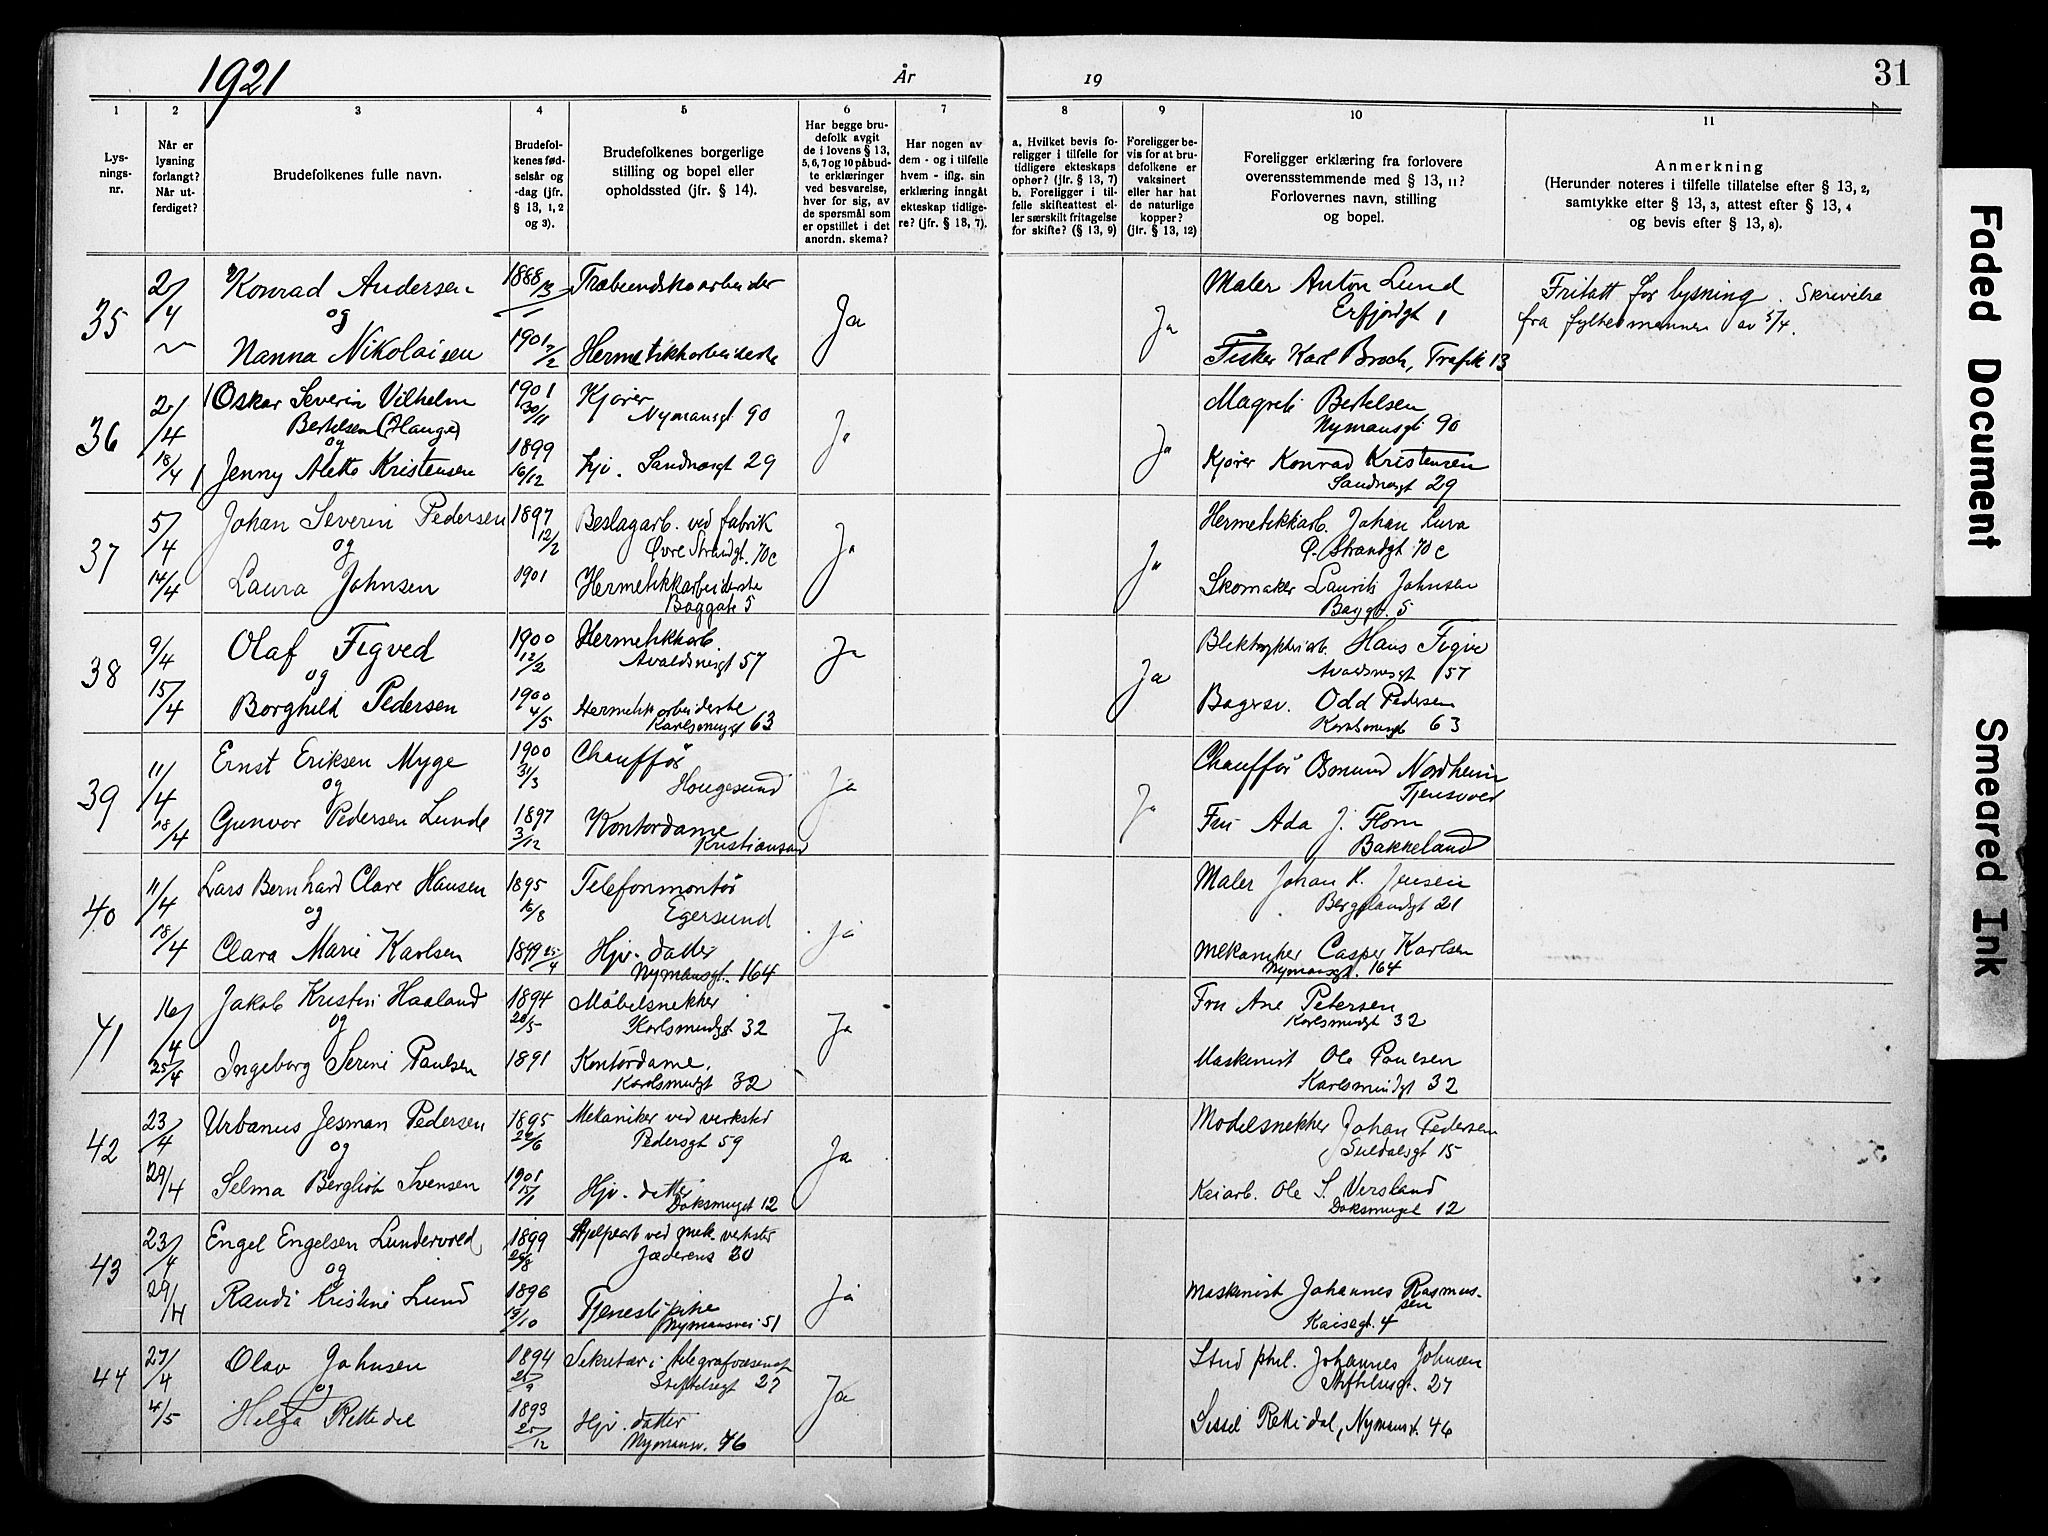 1921
År
19
31
1
2
3
4
5
6
7
8
9
10
11
Lys-
nings-
nr.
Når er
lysning
forlangt?
Når ut-
ferdiget?
Brudefolkenes fulle navn.
Brudefol-
kenes fød-
selsår og
-dag (jfr.
§ 13, 1, 2
og 3).
Brudefolkenes borgerlige
stilling og bopel eller
opholdssted (jfr. § 14).
Har begge bru-
defolk avgit
de i lovens § 13,
5, 6, 7 og 10 påbud-
te erklæringer
ved besvarelse,
hver for sig, av
de spørsmål som
er opstillet i det
anordn. skema?
Har nogen av
dem - og i tilfelle
hvem - iflg. sin
erklæring inngåt
ekteskap tidlige-
re? (jfr. § 13, 7).
a. Hvilket bevis fo-
religger i tilfelle for
tidligere ekteskaps
ophør? (jfr. § 13, 7)
b. Foreligger i til-
felle skifteattest el-
ler særskilt fritagelse
for skifte? (§ 13, 9)
Foreligger be-
vis for at bru-
defolkene er
vaksinert
eller har hat
de naturlige
kopper?
(jfr. § 13, 12)
Foreligger erklæring fra forlovere
overensstemmende med § 13, 11?
Forlovernes navn, stilling
og bopel.
Anmerkning
(Herunder noteres i tilfelle tillatelse efter § 13, 2,
samtykke efter § 13, 3, attest efter § 13, 4
og bevis efter § 13, 8).
35
2/4
Konrad Andersen
og
Nanna Nikolaisen
1888
1901 7/2
Hermetikkarbeiderske
Ja
Ja
Maler Anton Lund
Erfjordgt 1
Fisker Karl Broch, Trafik 13
Fritatt for lysning. Skrivelse
fra fylkesmannen av 5/4.
36
2/4
18/4
Oskar Severin Vilhelm
Bertelsen (Hauge)
og
Jenny Alette Kristensen
1901
30/11
1899
16/12
Kjører
Nymansgt 90
Hjv. Sandnesgt 29
Ja
Ja
Magreti Bertelsen
Nymansgt 90
Kjører Konrad Kristensen
Sandnesgt 29
37
5/4
14/4
Johan Severin Pedersen
og
Laura Johnsen
1897
12/2
1901
Beslagarb. ved fabrik
Øvre Strandgt. 70c
Hermetikkarbeiderske
Baggate 5
Ja
Ja
Hermetikkarb. Johan Lura
Ø. Strandgt 70c
Skomaker Laurits Johnsen
Baggt. 5
38
9/4
15/4
Olaf Figved
og
Borghild Pedersen
1900
12/2
1900
4/5
Hermetikkarb.
Avaldsnesgt 57
Hermetikkarbeiderske
Karlsmingt 63
Ja
Ja
Bliktrykkeriarb. Hans Figve
Avaldsnesgt 57
Bagersv. Odd Pedersen
Karlsmingt 63
39
11/4
18/4
Ernst Eriksen Myge
og
Gunvor Pedersen Lunde
1900
31/3
1897
3/12
Chauffør
Haugesund
Kontordame
Kristiansand
Ja
Ja
Chauffør Osmund Nordheim
Tjensvold
Fru Ada J. Flom
Bakkeland
40
11/4
18/4
Lars Bernhard Clare Hansen
og
Clara Marie Karlsen
1895
16/8
1899 25/4
Telefonmontør
Egersund
Hjv. datter
Nymansgt. 164
Ja
Maler Johan K. Jensen
Berglandsgt 21
Mekaniker Casper Karlsen
Nymansgt. 164
41
16/4
25/4
Jakob Kristin Haaland
og
Ingeborg Serine Paulsen
1894
20/5
1891
Møbelsnekker
Karlsmindgt 32
Kontordame.
Karlsmindgt 32
Ja
Fru Ane Petersen
Karlsmindgt 32
Maskinist Ole Paulsen
Karlsmindgt 32
42
23/4
29/4
Urbanus Jesman Pedersen
og
Selma Bergliot Svensen
1895
26/6
1901
Mekaniker ved verksted
Pedersgt 59
Hjv. datter
Doksmuget 12
Ja
Modelsnekker Johan Pedersen
Suldalsgt 15
Kaiarb. Ole S. Versland
Doksmuget 12
43
23/4
29/4
Engel Engelsen Lundervold
og
Randi Kristine Lund
1899
1896
19/10
Hjelpearb ved mek. verksted
Jæderens 20
Tjenestepike
Nymansvei 51
Ja
Maskinist Johannes Rasmus-
sen
Kaisegt. 4
44
27/4
4/5
Olav Johnsen
og
Helga Rettedal
1894
21/9
1893
25/12
Sekretær i telegrafvæsenet
Stiftelsegt 27
Hjv. datter
Nymansv. 46
Ja
Stud phil. Johannes Johnsen
Stiftelsesgt. 27
Sissel Rettedal, Nymansv. 46
Faded Document
Smeared Ink